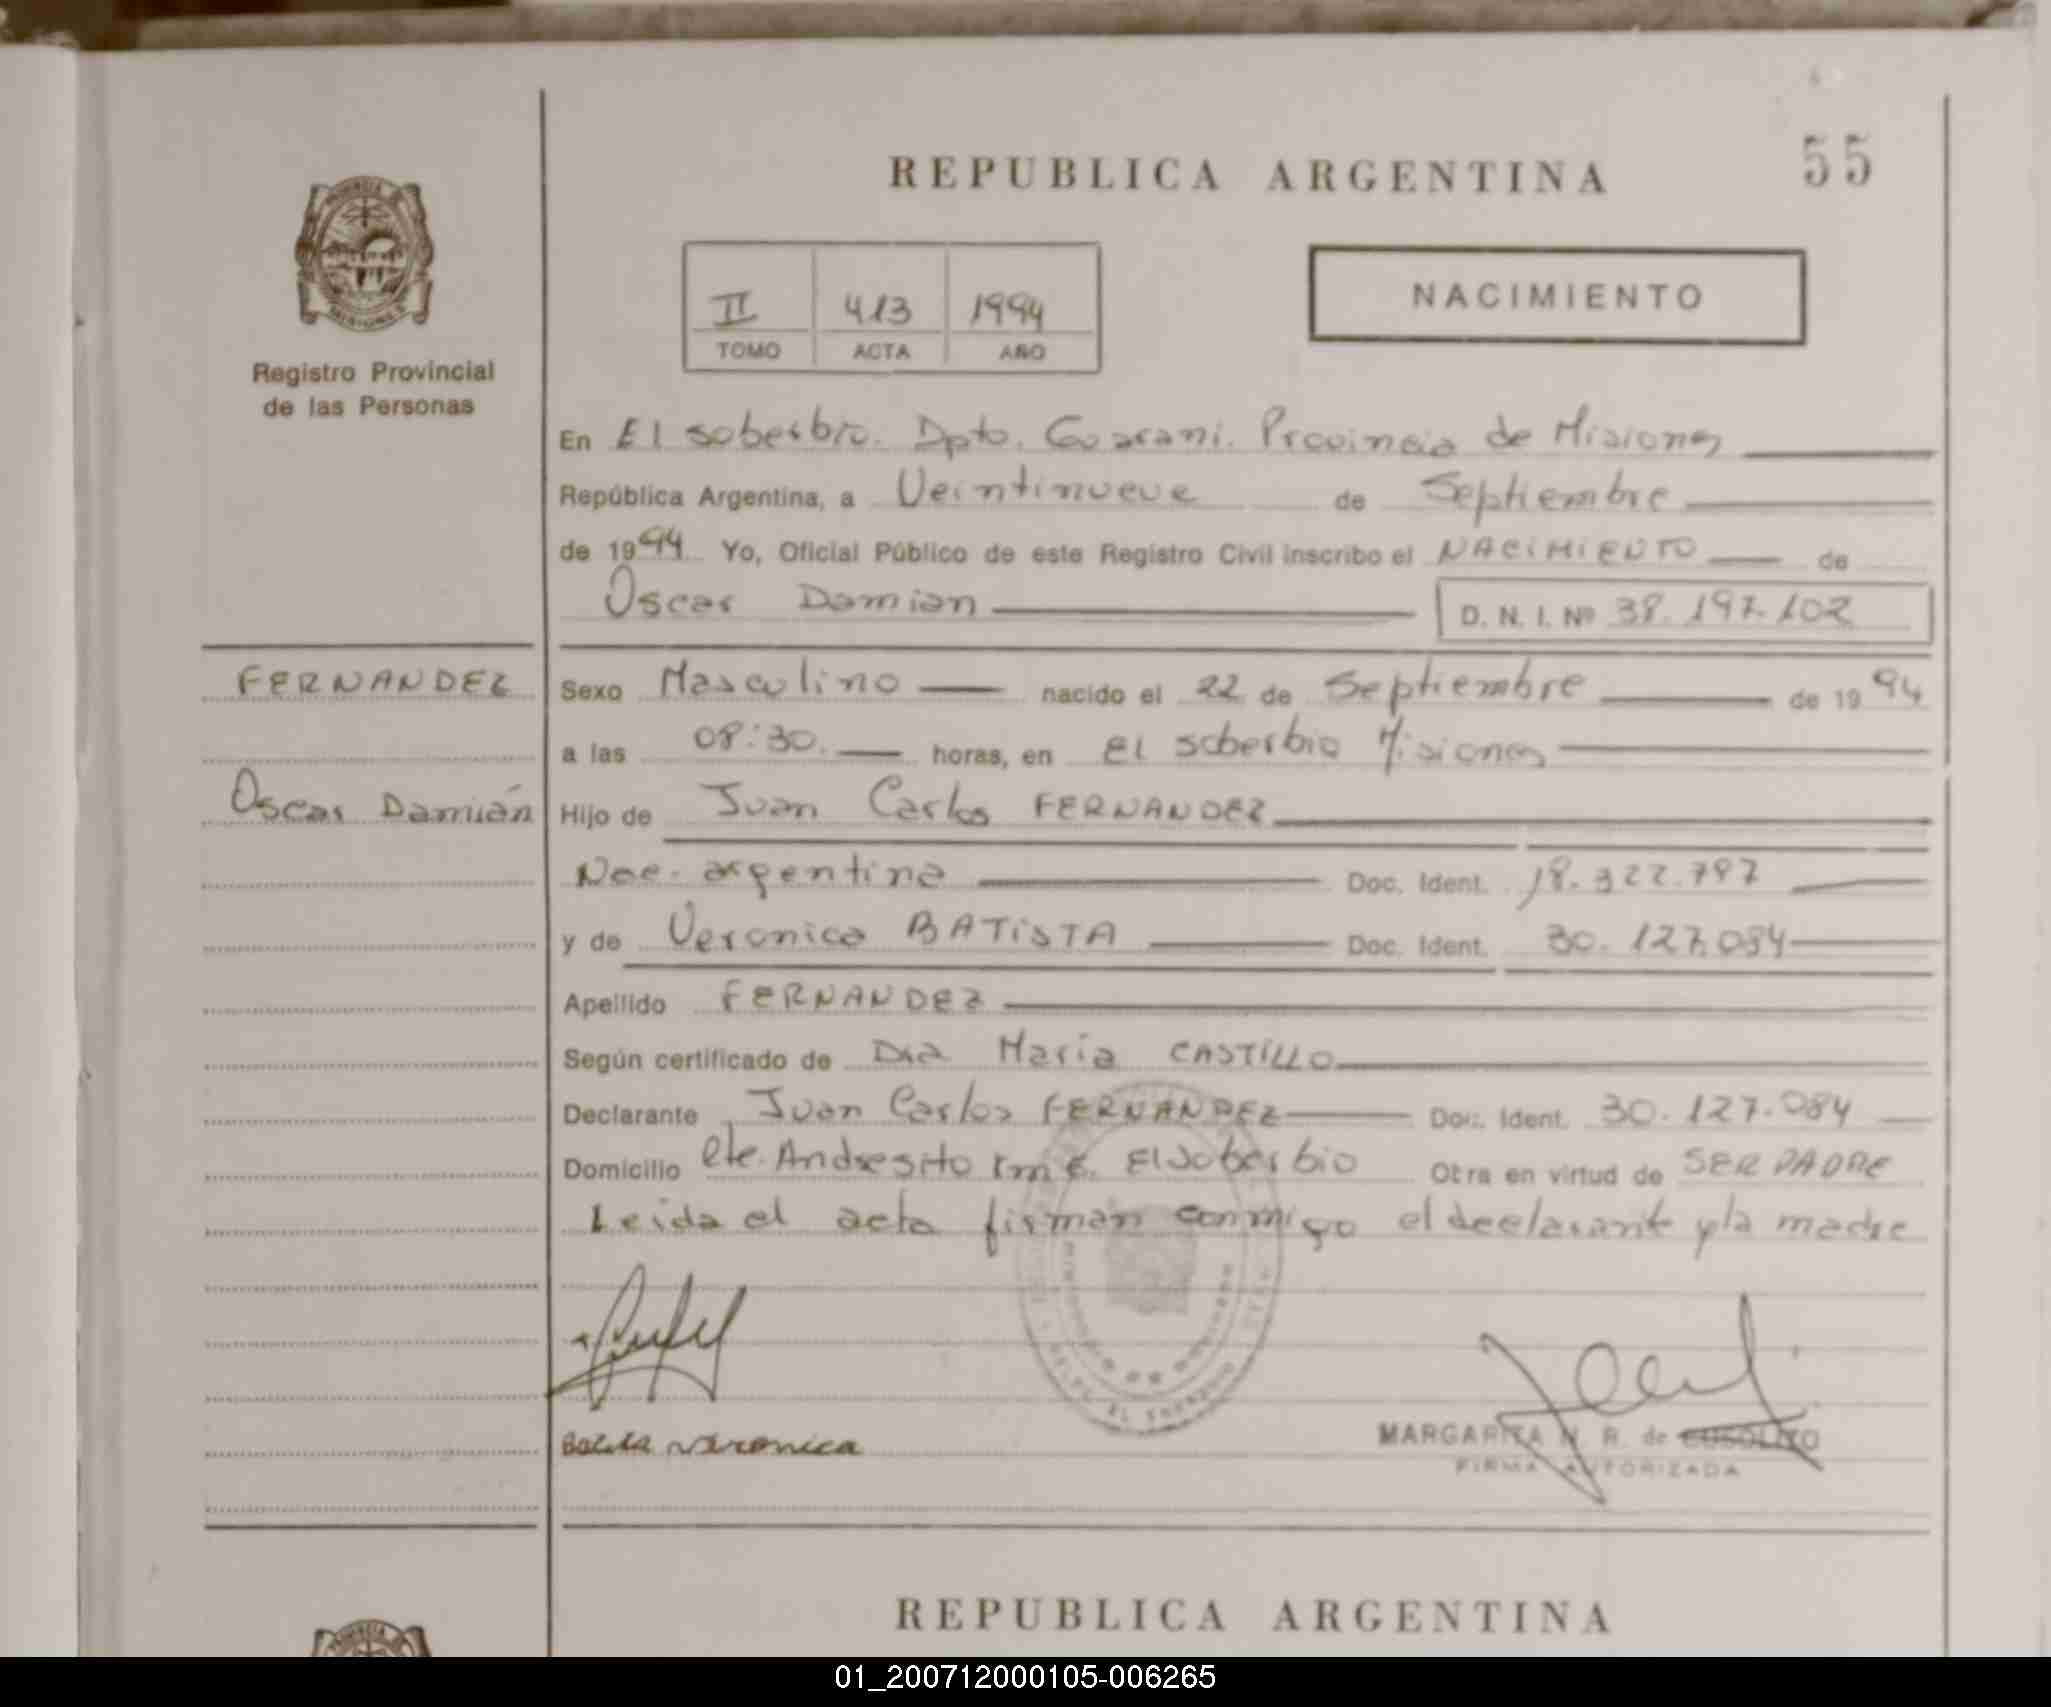 REPUBLICA ARGENTINA
55
II 413 1994
TOMO ACTA AÑO
NACIMIENTO
Registro Provincial
de las Personas
En El soberbio. Dpto. Guarani. Provincia de Misiones
República Argentina, a Veintinueve de Septiembre
de 1994 Yo, Oficial Público de este Registro Civil inscribo el NACIMIENTO de
Oscar Damian D. N. I. Nº 38.197.102
FERNANDEZ
Oscar Damián
Sexo Masculino nacido el 22 de Septiembre de 1994
a las 08:30. horas, en El Soberbio Misiones
Hijo de Juan Carlos FERNANDEZ
Nac. argentina Doc. Ident. 18.322.797
y de Veronica BATISTA Doc. Ident. 30.127.084
Apellido FERNANDEZ
Según certificado de Dra Maria CASTILLO
Declarante Juan Carlos FERNANDEZ Doc. Ident. 30.127.084
Domicilio Cte. Andresito Km 6. El Soberbio Otra en virtud de SER PADRE
Leida el acta firman conmigo el declarante y la madre
Veronica
MARGARITA R. de
FIRMA AUTORIZADA
REPUBLICA ARGENTINA
01_200712000105-006265